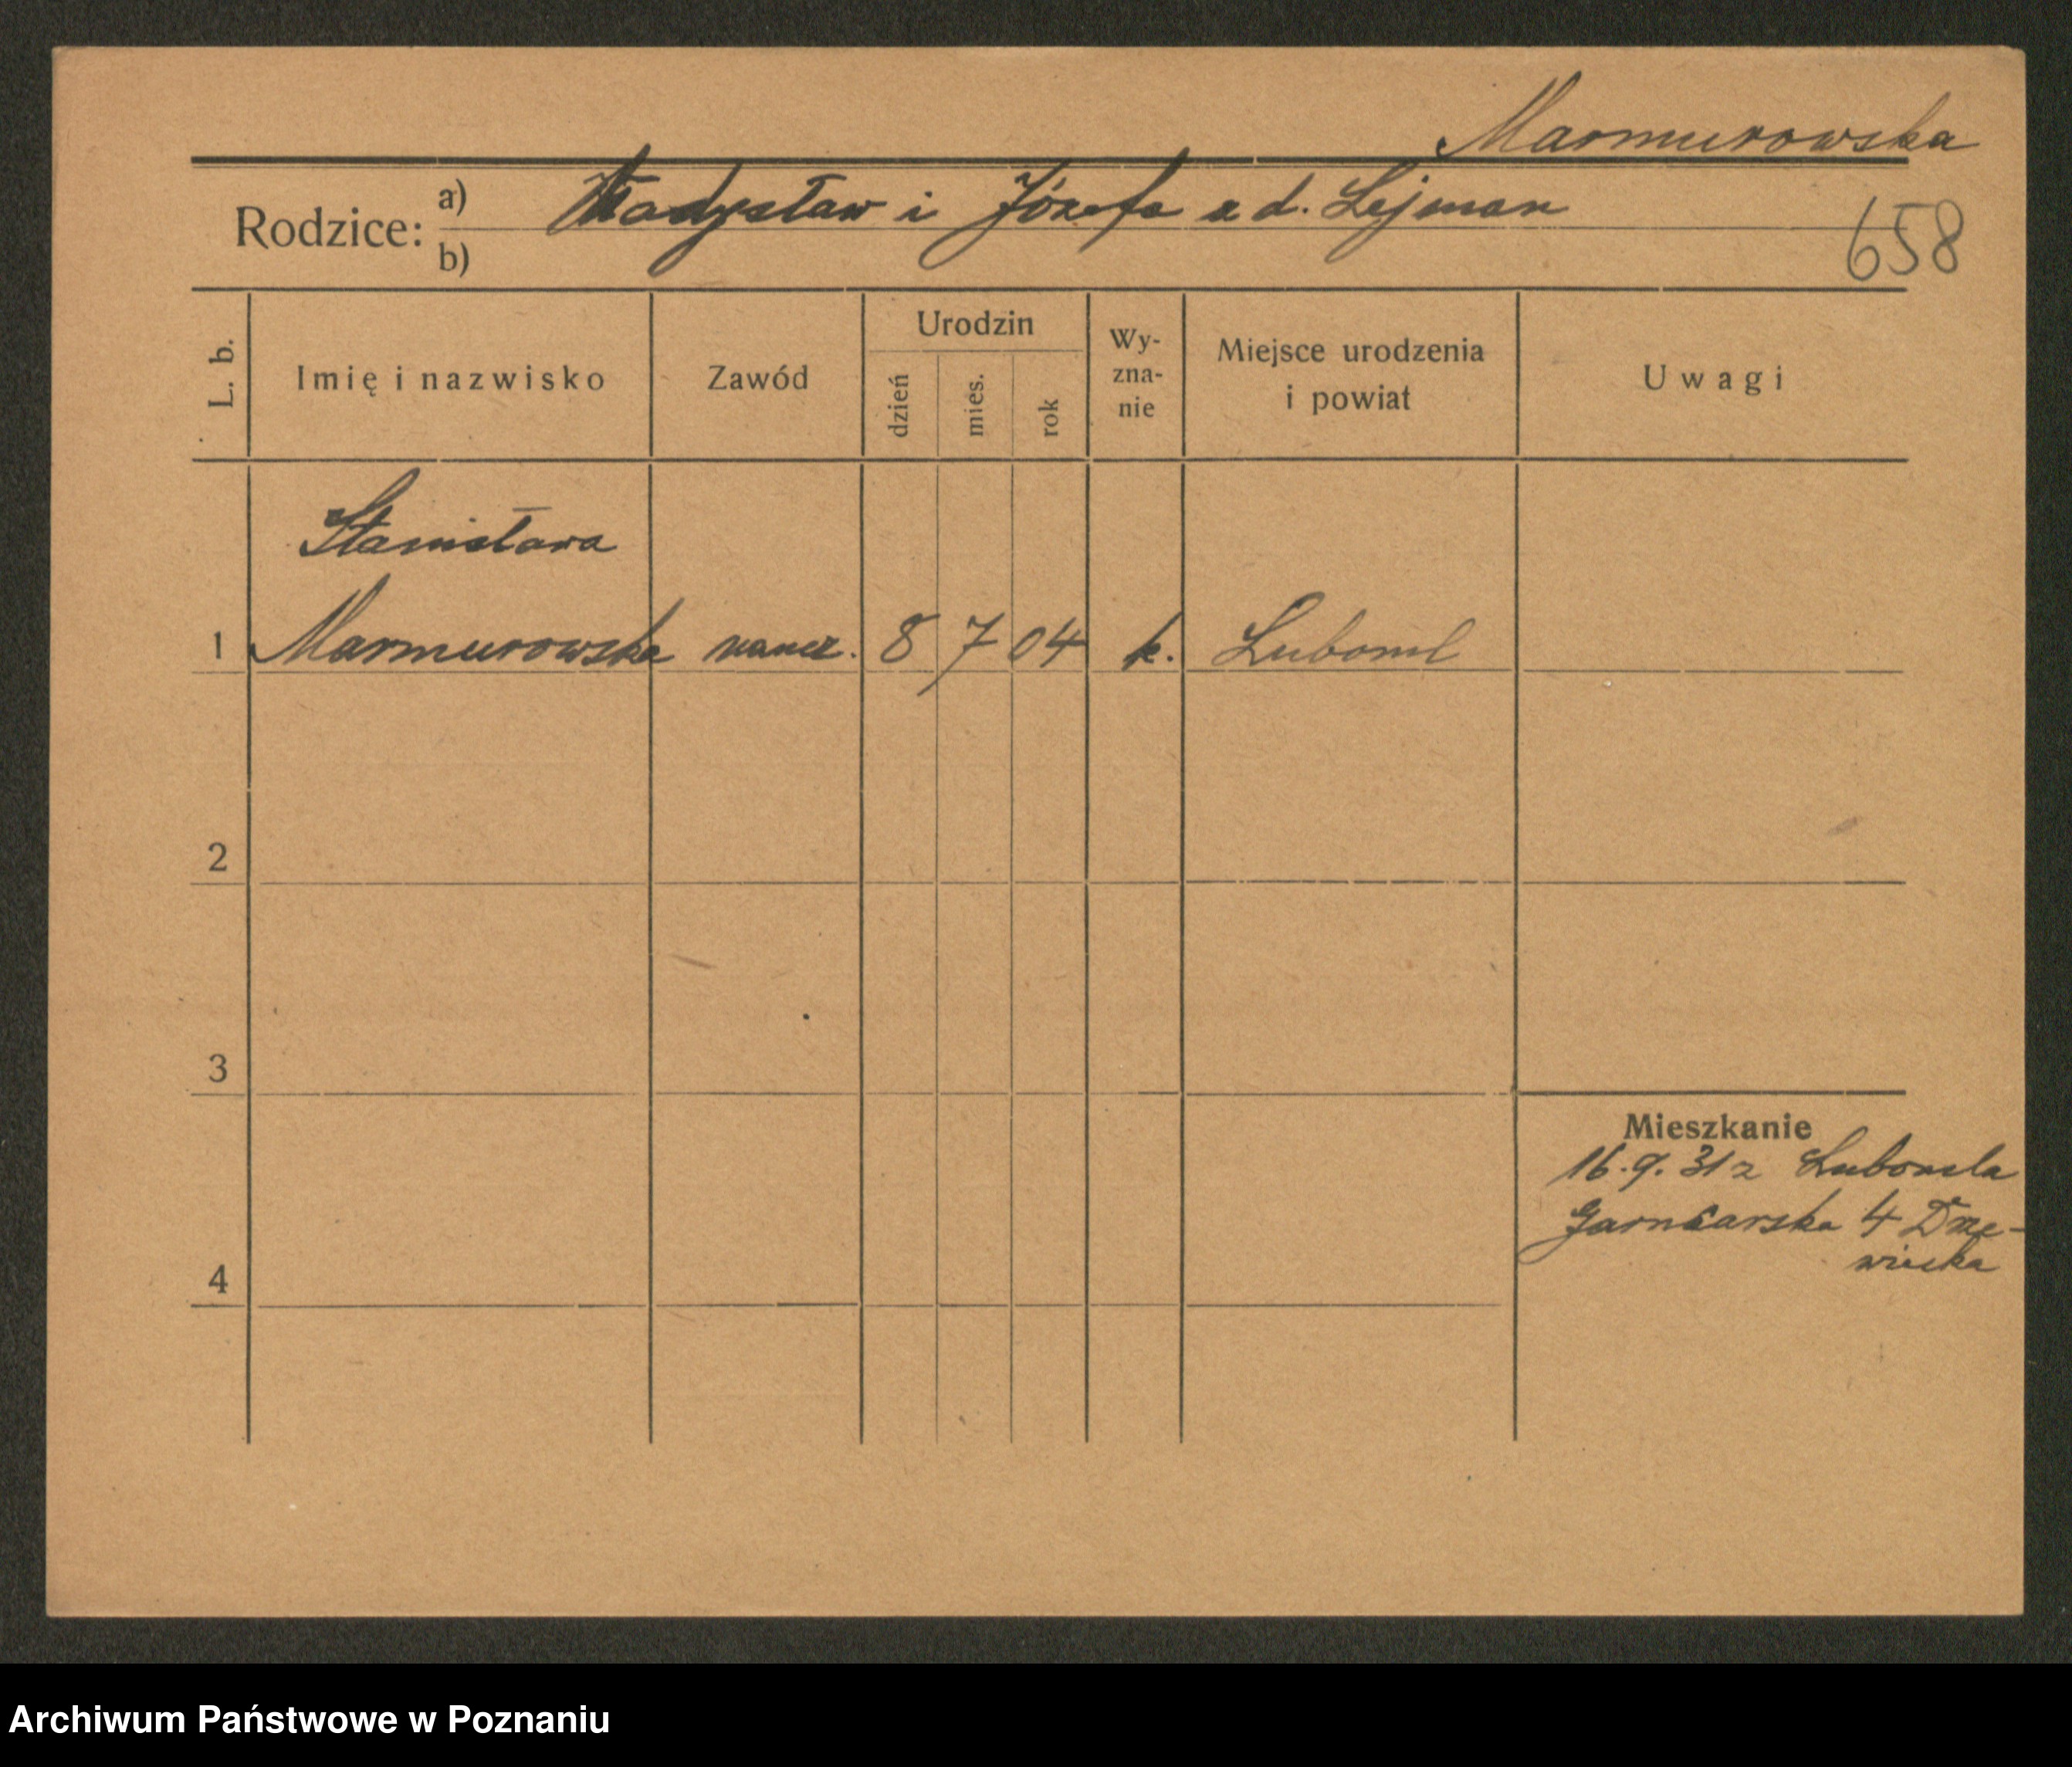 Marmurowska
Rodzice: a) Władysław i Józefa z d. Lejman
b)
658
L. b.
Imię i nazwisko
Zawód
Urodzin
dzień
mies.
rok
Wy-
zna-
nie
Miejsce urodzenia
i powiat
Uwagi
Stanisława
1 Marmurowska naucz. 8 7 04 k. Luboml
2
3
Mieszkanie
16.9.31 z Lubomla
Garncarska 4 Drze-
wiecka
4
Archiwum Państwowe w Poznaniu